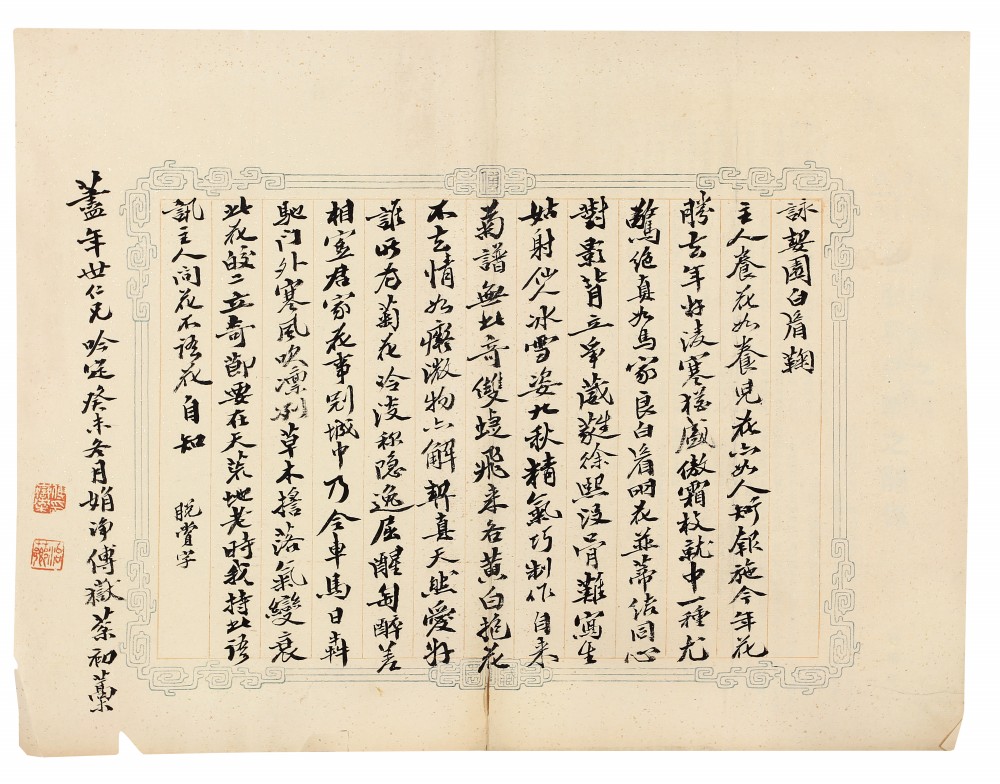 詠契園白眉鞠
主人養花如養兒花亦如人知報施今年花
勝去年好凌寒獨傲霜枝就中一種尤
驚絕真如馬家良白眉兩花並蒂結同心
對影背立爭葳蕤徐熙沒骨難寫生
姑射仙人冰雪姿九秋精氣巧制作自來
菊譜無此奇雙蜨飛來各黃白抱花
不去情如癡微物亦解契真天然愛好
誰所為菊花冷淡称隱逸屈醒陶醉差
相宜君家花事別城中乃令車馬日犇
馳門外寒風吹凜冽草木搖落氣變衰
此花皎二立奇節要在天荒地老時我持此語
訊主人問花不語花自知
脫賞字
藎年世仁兄吟定癸未冬月娟淨傅嶽棻初藁